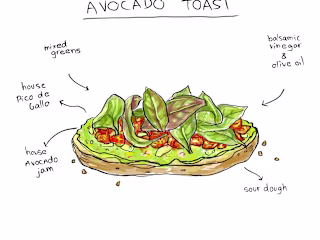 AVOCADO TOAST
mixed
greens
balsamic
vinegar
&
olive oil
house
Pico de
Gallo
house
Avocado
jam
sour dough